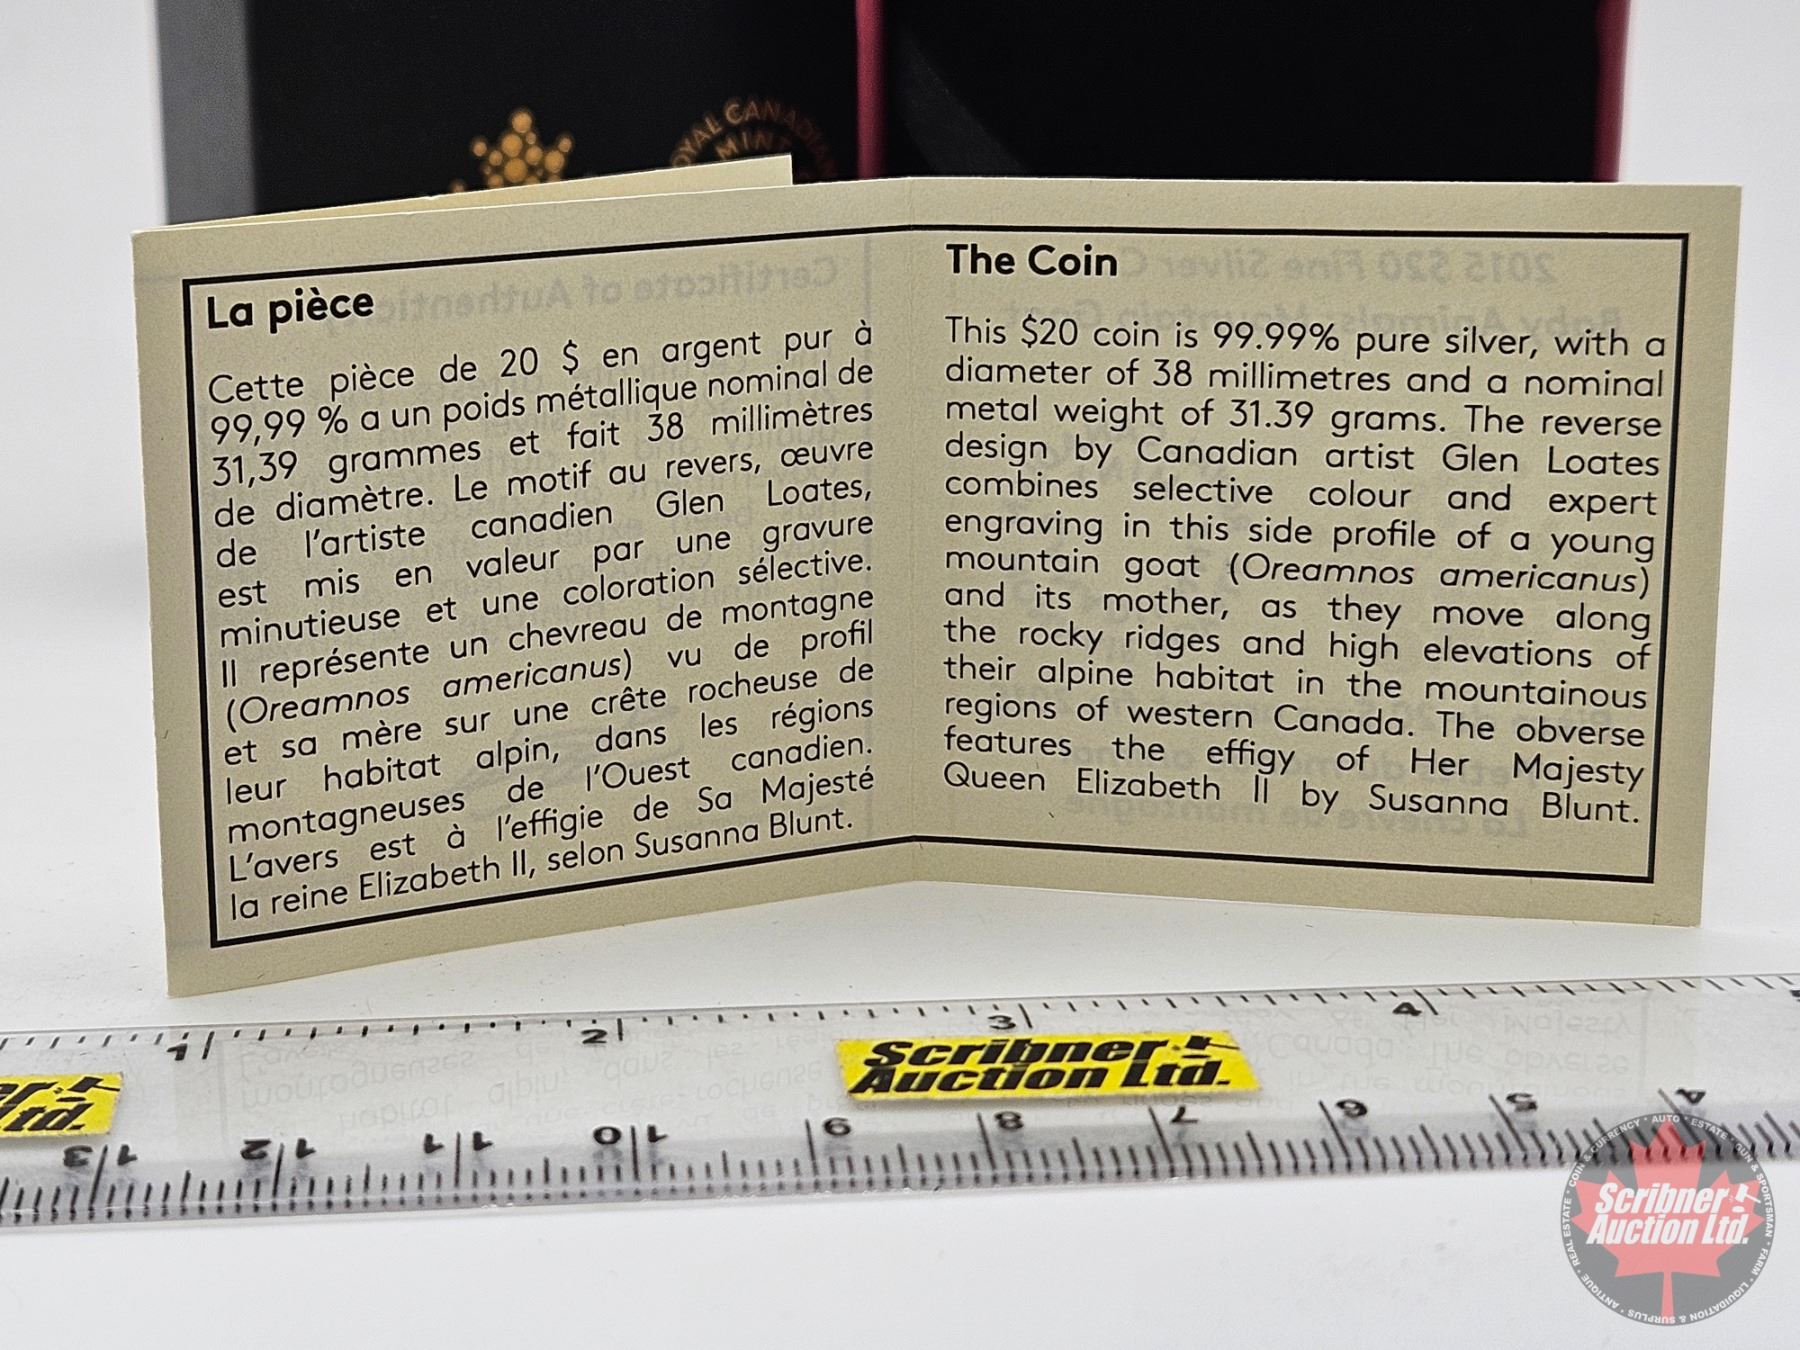 ROYAL CANADIAN
MINT
La pièce
Cette pièce de 20 $ en argent pur à
99,99 % a un poids métallique nominal de
31,39 grammes et fait 38 millimètres
de diamètre. Le motif au revers, œuvre
de l'artiste canadien Glen Loates,
est mis en valeur par une gravure
minutieuse et une coloration sélective.
Il représente un chevreau de montagne
(Oreamnos americanus) vu de profil
et sa mère sur une crête rocheuse de
leur habitat alpin, dans les régions
montagneuses de l'Ouest canadien.
L'avers est à l'effigie de Sa Majesté
la reine Elizabeth II, selon Susanna Blunt.
The Coin
This $20 coin is 99.99% pure silver, with a
diameter of 38 millimetres and a nominal
metal weight of 31.39 grams. The reverse
design by Canadian artist Glen Loates
combines selective colour and expert
engraving in this side profile of a young
mountain goat (Oreamnos americanus)
and its mother, as they move along
the rocky ridges and high elevations of
their alpine habitat in the mountainous
regions of western Canada. The obverse
features the effigy of Her Majesty
Queen Elizabeth II by Susanna Blunt.
1 2 3 4 5
Scribner
Auction Ltd.
er
td.
13 12 11 10 9 8 7 6 5 4
Scribner
Auction Ltd.
COIN & CURRENCY · AUTO · ESTATE · GUN & SPORTSMAN · FARM · LIQUIDATION & SURPLUS · ANTIQUE · REAL ESTATE